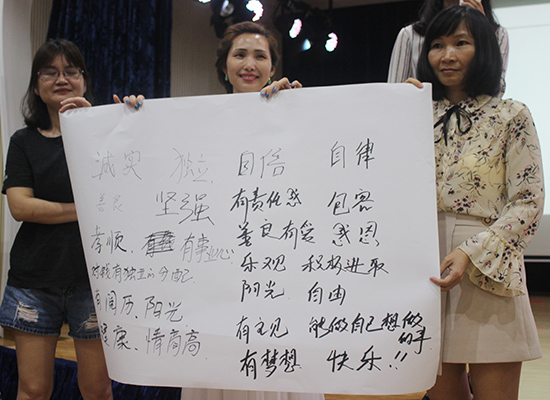 诚实 独立 自信 自律
善良 坚强 有责任感 包容
孝顺、有事业心 善良有爱 感恩
有独立的 乐观 积极进取
有阅历、阳光 阳光 自由
健康、情商高 有主见 能做自己想做的事
有梦想 快乐!!